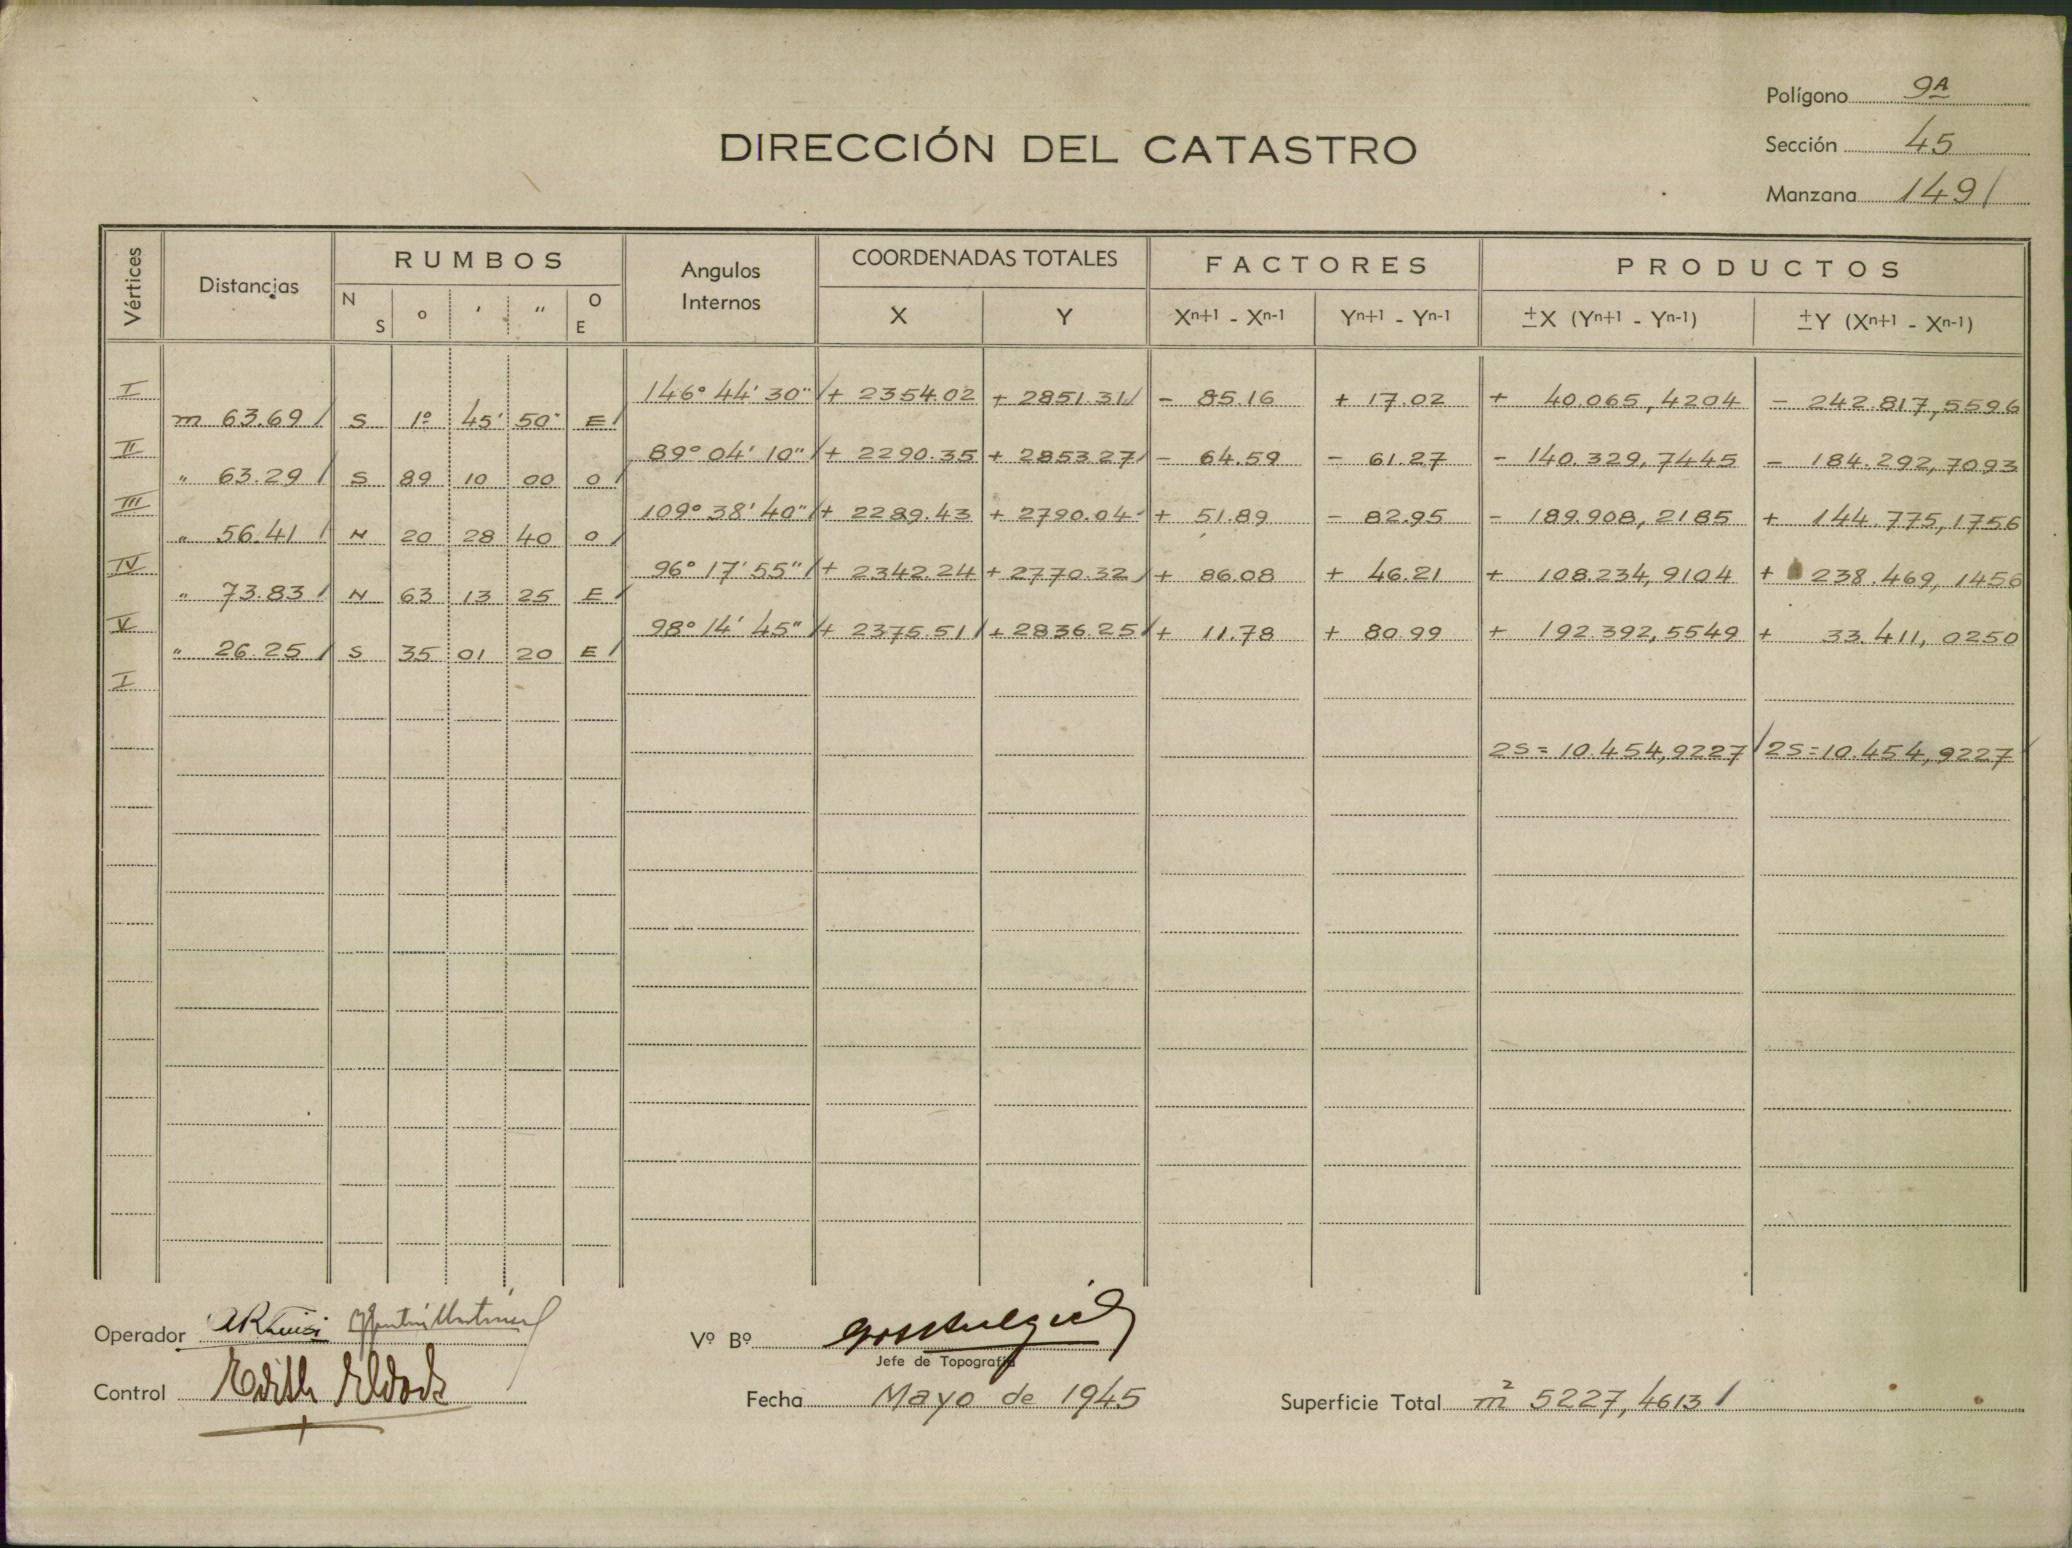 Polígono 9A
DIRECCIÓN DEL CATASTRO
Sección 45
Manzana 149
Vértices Distancias RUMBOS Angulos Internos COORDENADAS TOTALES FACTORES PRODUCTOS
N S ° ' " O E X Y Xn+1 - Xn-1 Yn+1 - Yn-1 ±X (Yn+1 - Yn-1) ±Y (Xn+1 - Xn-1)
I 146° 44' 30" + 2354.02 + 2851.31 - 85.16 + 17.02 + 40.065,4204 - 242.817,5596
m 63.69 S 1° 45' 50" E
II 89° 04' 10" + 2290.35 + 2853.27 - 64.59 - 61.27 - 140.329,7445 - 184.292,7093
" 63.29 S 89 10 00 O
III 109° 38' 40" + 2289.43 + 2790.04 + 51.89 - 82.95 - 189.908,2185 + 144.775,1756
" 56.41 N 20 28 40 O
IV 96° 17' 55" + 2342.24 + 2770.32 + 86.08 + 46.21 + 108.234,9104 + 238.469,1456
" 73.83 N 63 13 25 E
V 98° 14' 45" + 2375.51 + 2836.25 + 11.78 + 80.99 + 192.392,5549 + 33.411,0250
" 26.25 S 35 01 20 E
I
2S = 10.454,9227 2S = 10.454,9227
Operador
Vº Bº
Jefe de Topografía
Control Edith
Fecha Mayo de 1945
Superficie Total m² 5227,4613